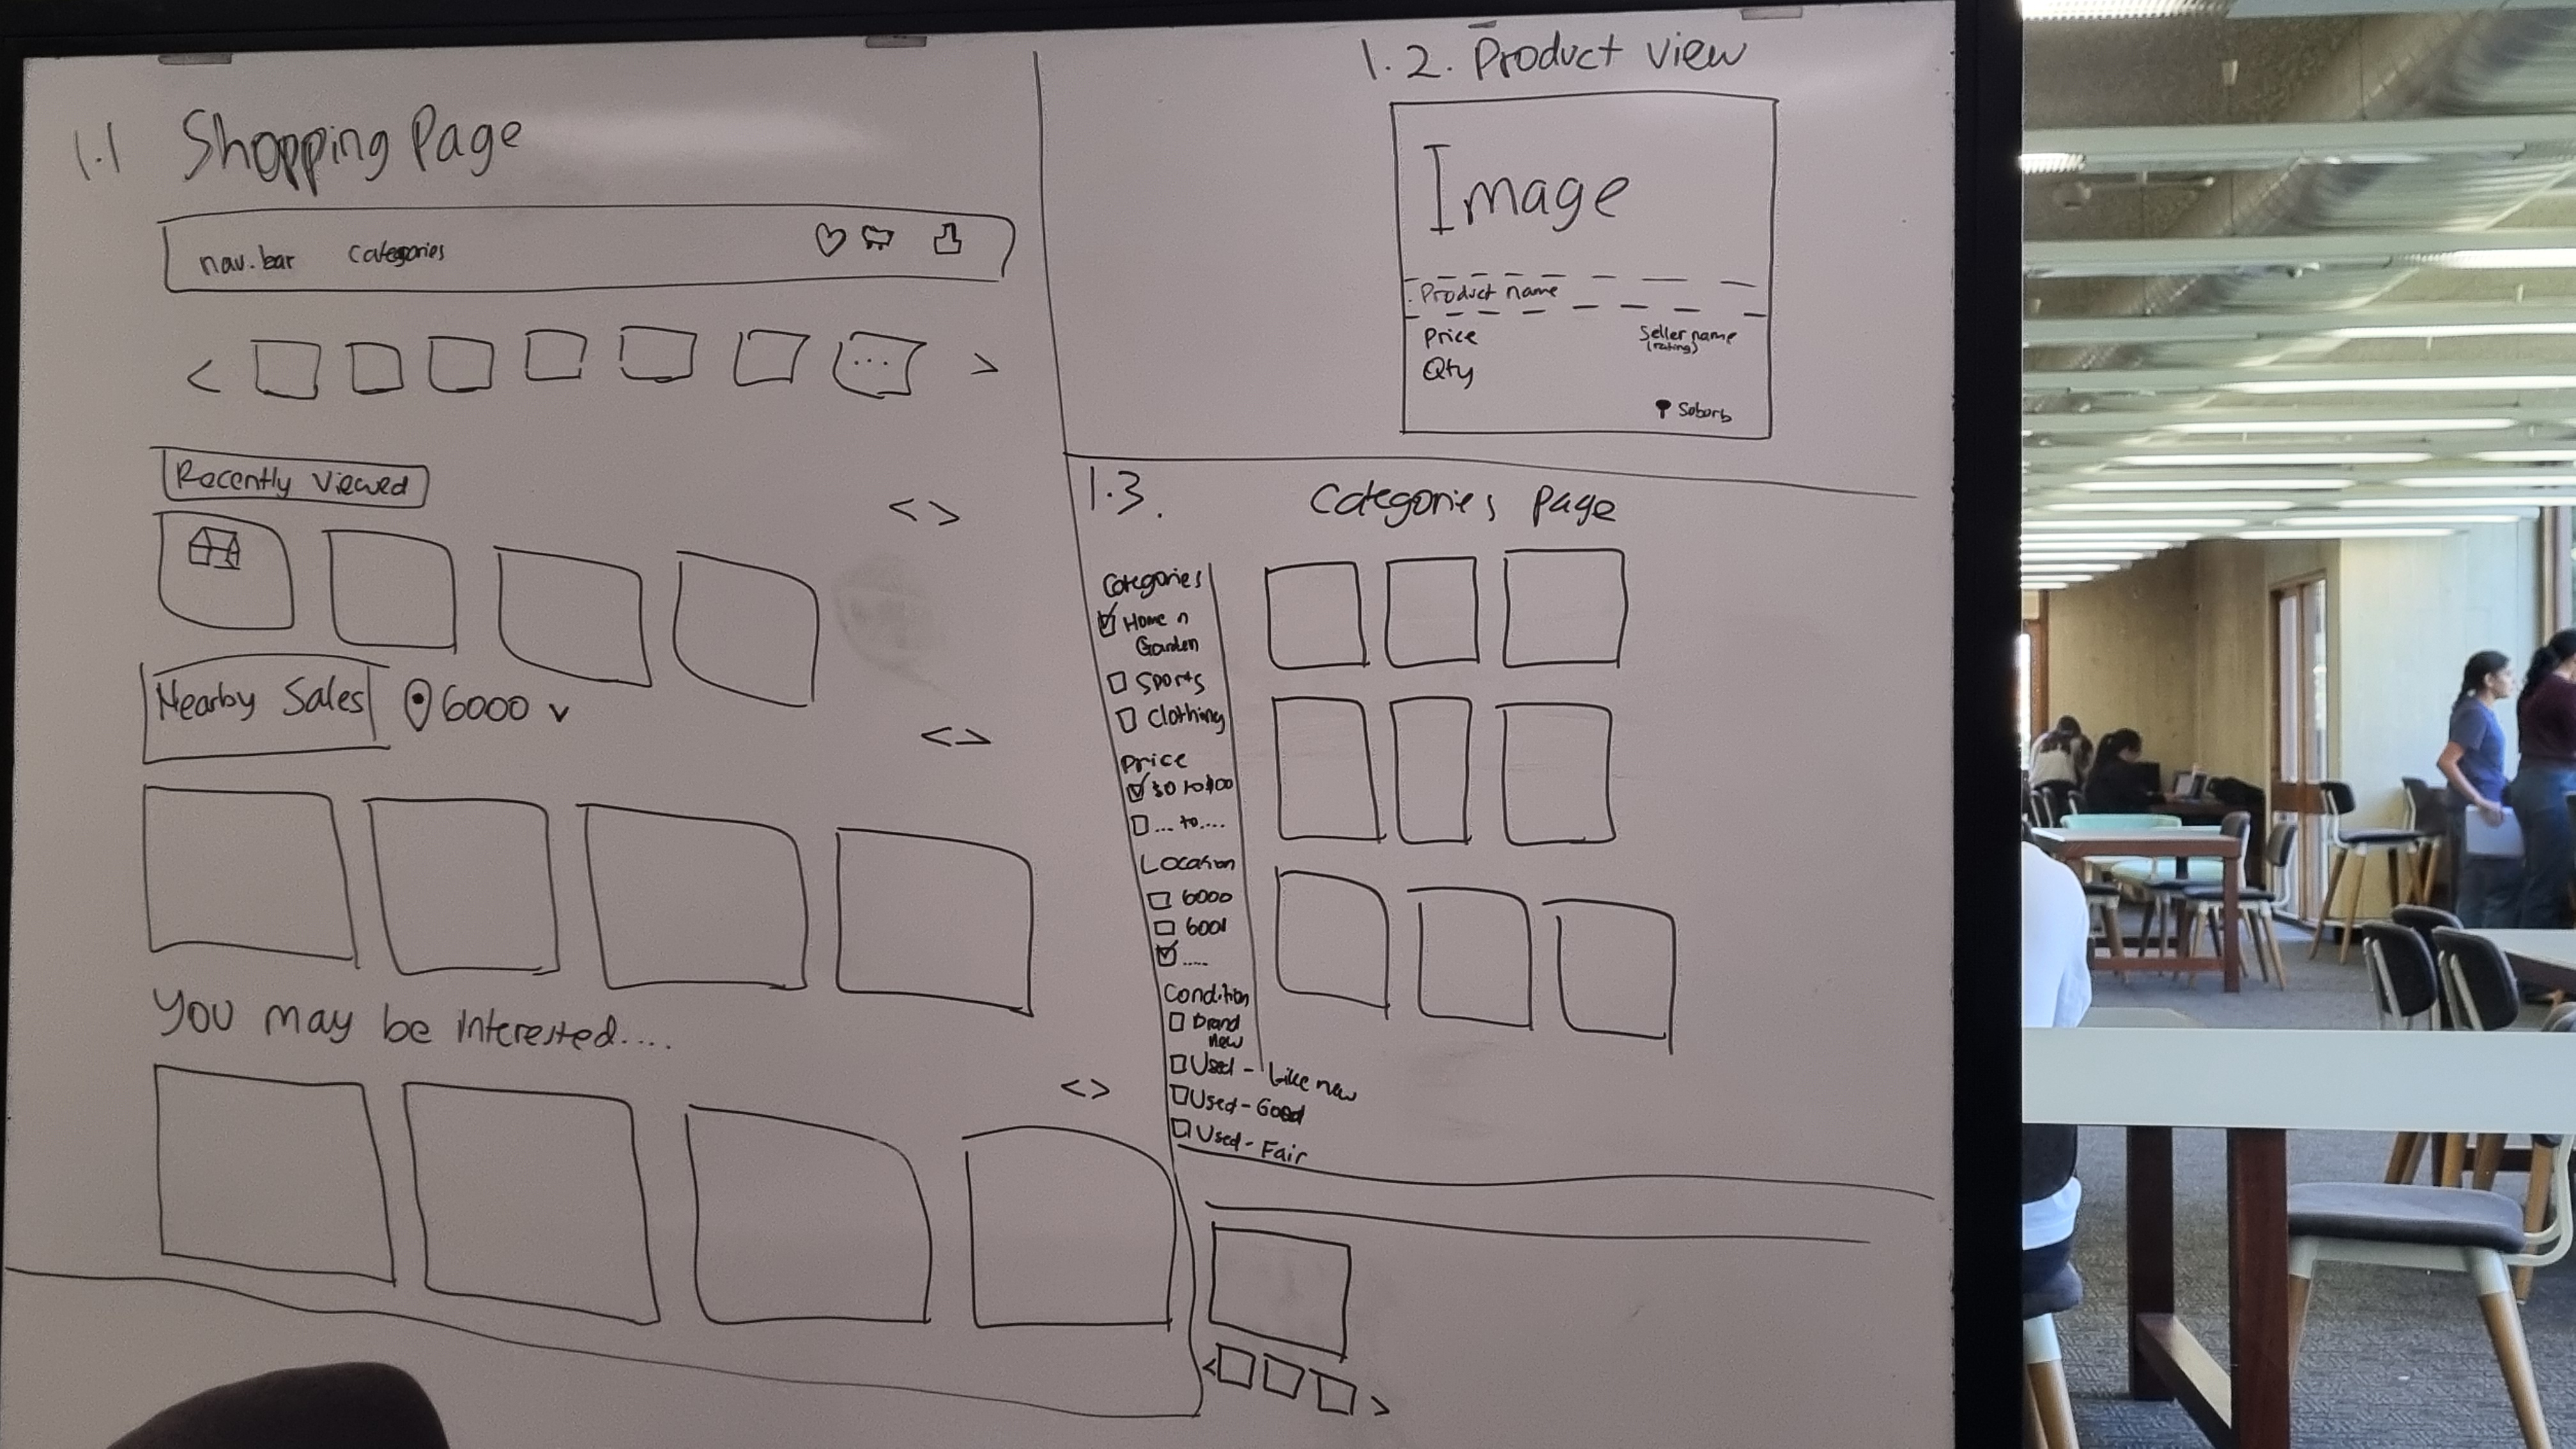 1.1 Shopping Page
nav.bar categories
< ... >
Recently Viewed
< >
Nearby Sales 6000 v
< >
You may be interested....
< >
1.2. Product view
Image
Product name
Price
Seller name
(rating)
Qty
Soborb
1.3. Categories Page
Categories
Home n
Garden
Sports
Clothing
Price
$0 to $100
... to ....
Location
6000
6001
.....
Condition
Brand
new
Used - Like new
Used - Good
Used - Fair
< >